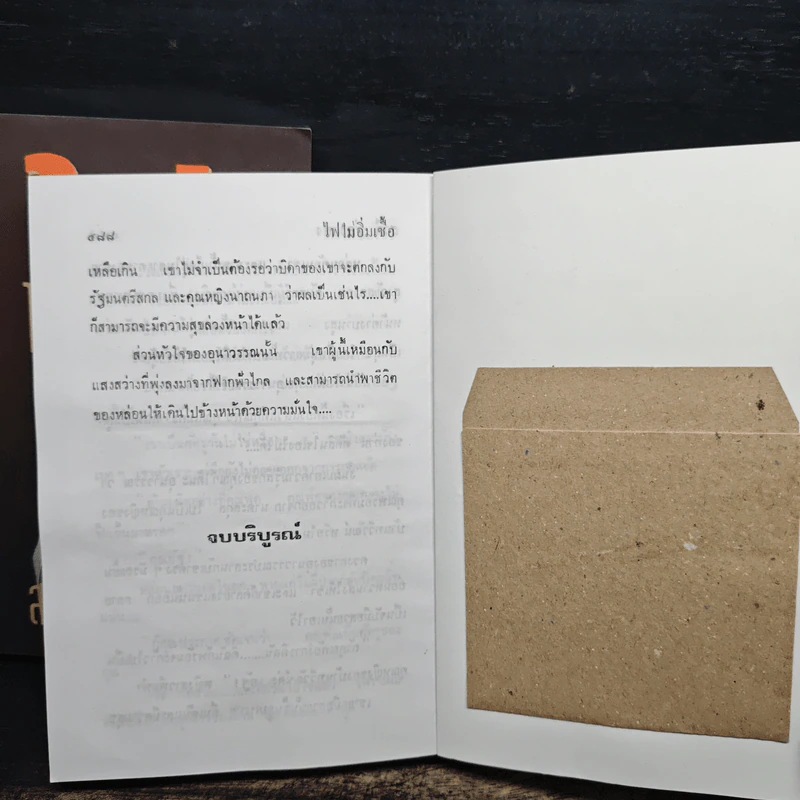 ๕๘๘ ไฟไม่อิ่มเชื้อ
เหลือเกิน เขาไม่จำเป็นต้องรอว่าบิดาของเขาจะตกลงกับ
รัฐมนตรีสกล และคุณหญิงนาถนภา ว่าผลเป็นเช่นไร....เขา
ก็สามารถจะมีความสุขล่วงหน้าได้แล้ว
ส่วนหัวใจของอุนาวรรณนั้น เขาผู้นี้เหมือนกับ
แสงสว่างที่พุ่งลงมาจากฟากฟ้าไกล และสามารถนำพาชีวิต
ของหล่อนให้เดินไปข้างหน้าด้วยความมั่นใจ....
จบบริบูรณ์